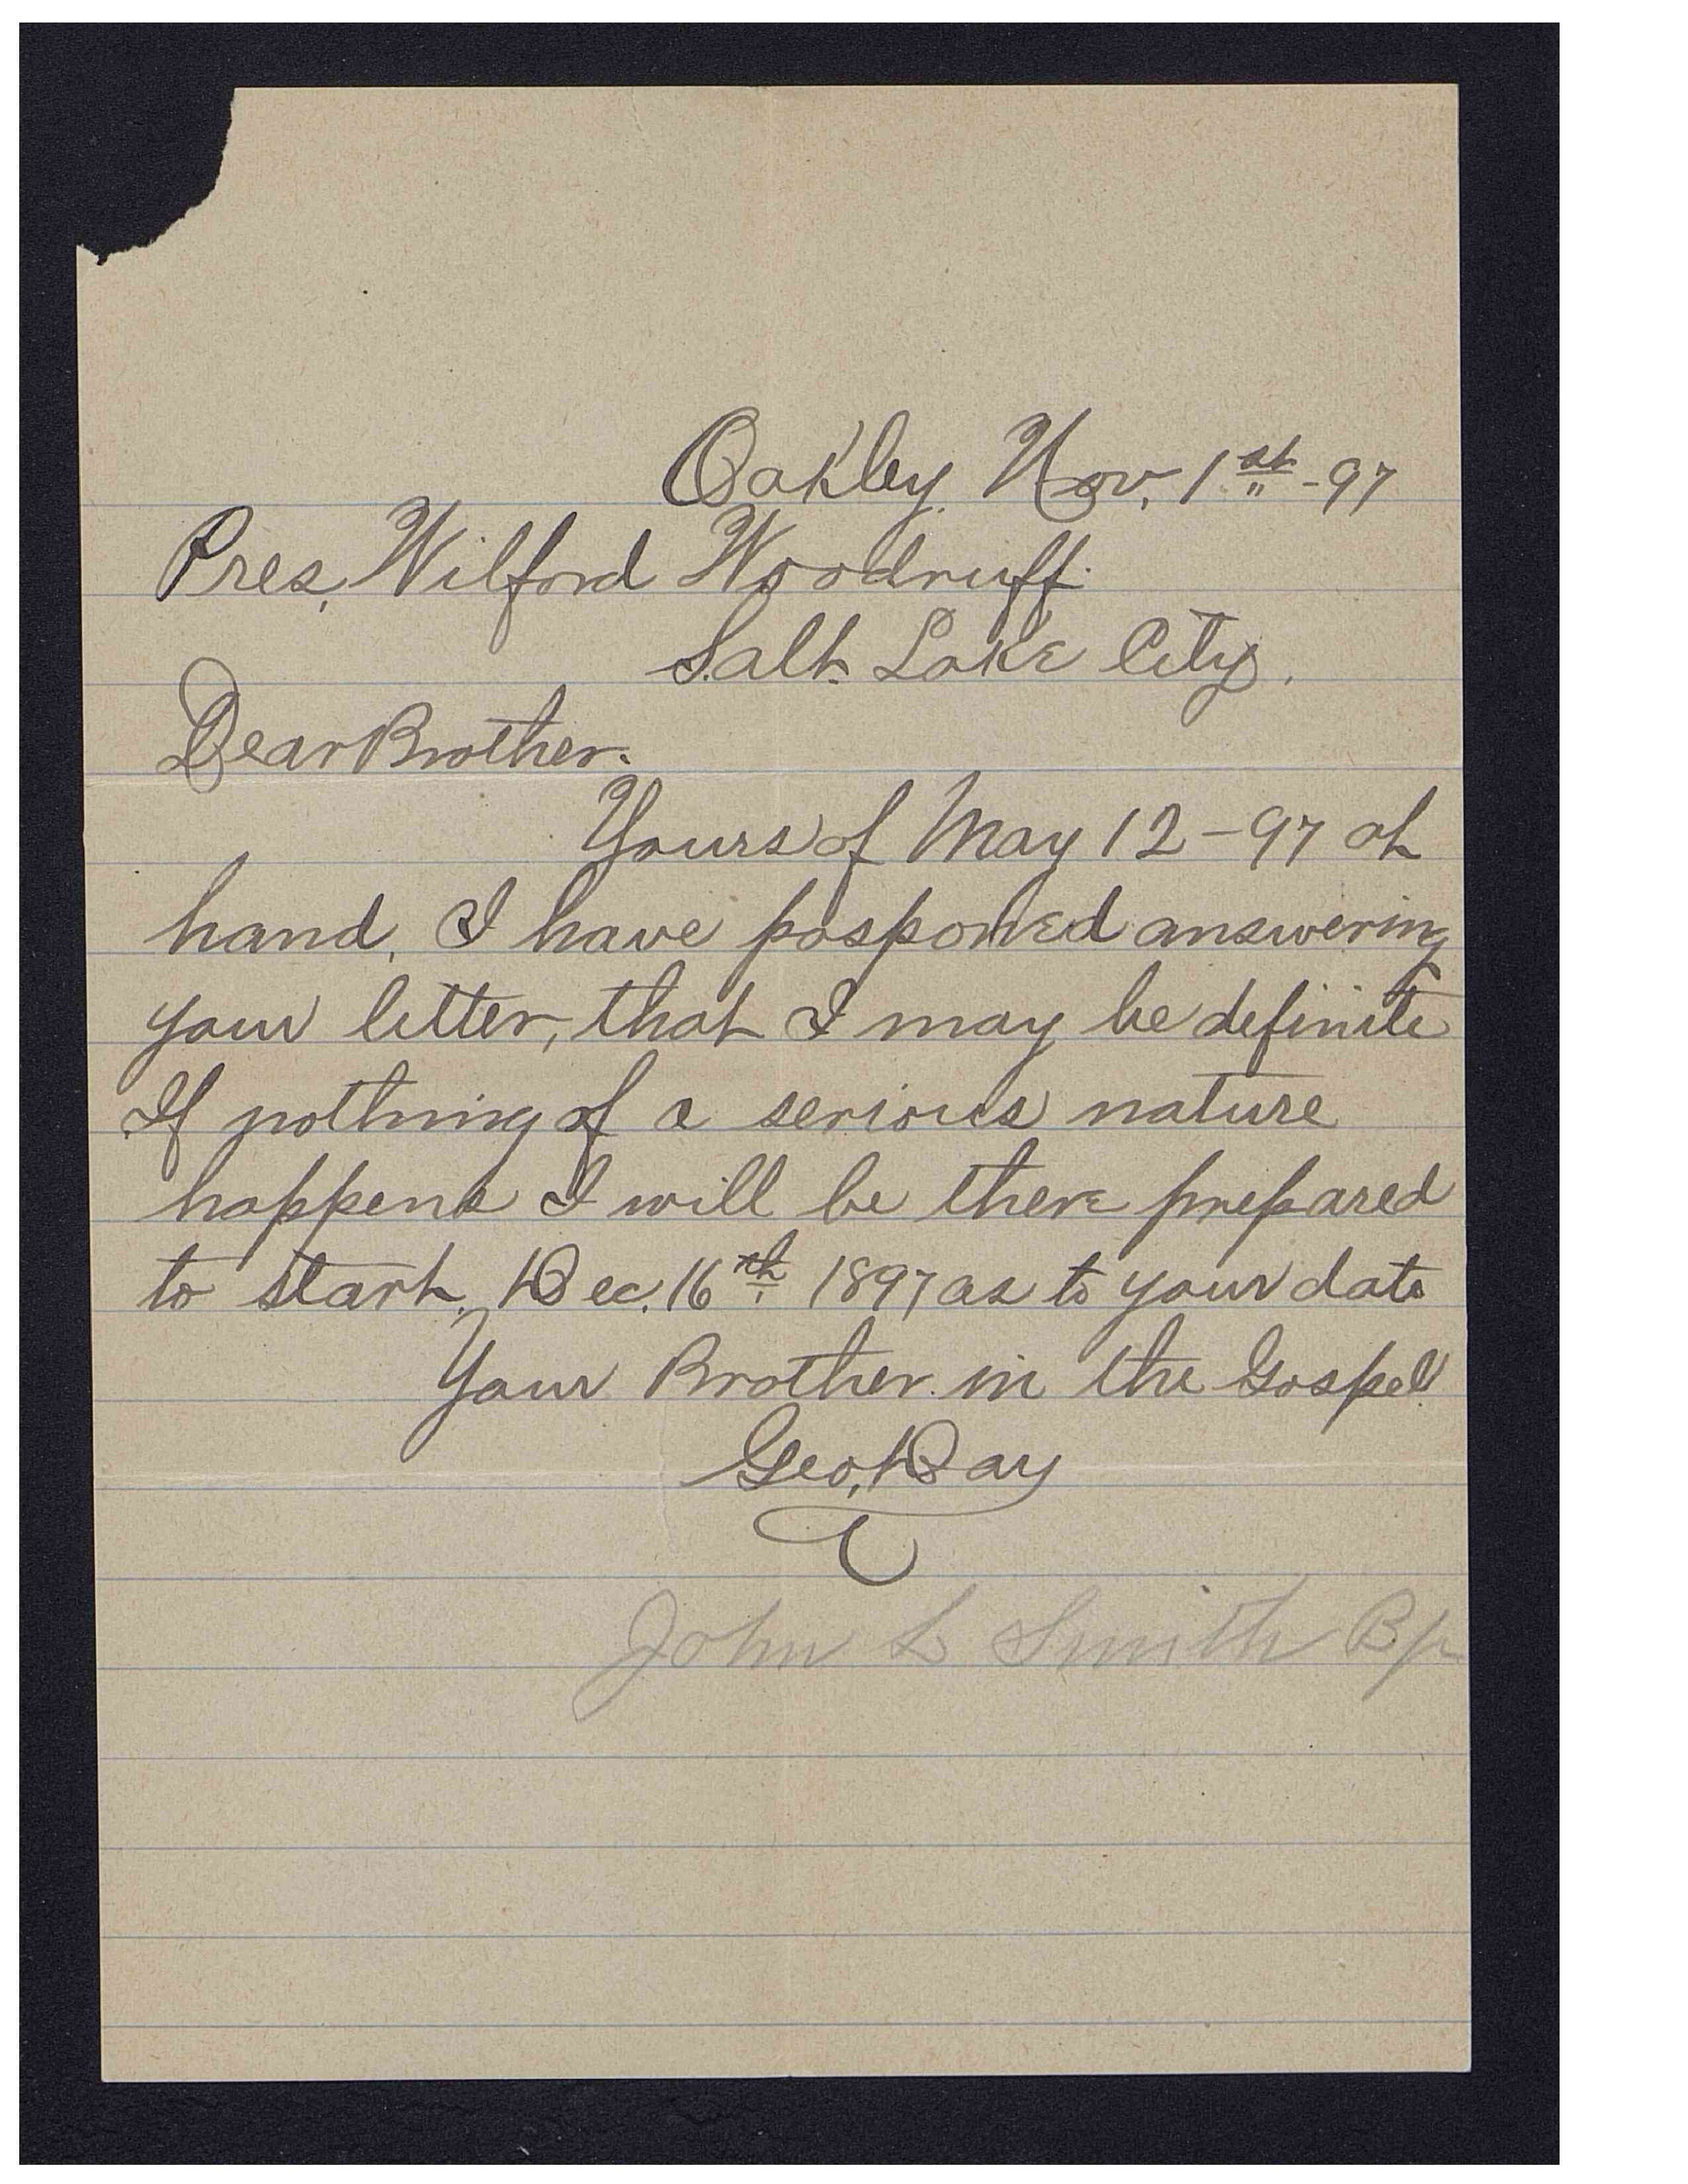 Oakley, Nov, 1st -97
Pres, Wilford Woodruff.
Salt Lake City.
Dear Brother.
Yours of May 12-97 at
hand, I have posponed answering
your letter, that I may be definite
If nothing of a serious nature
happens I will be there prepared
to start, Dec. 16th 1897 as to your date
Your Brother in the Gospel
Geo, Day
John L Smith Bp